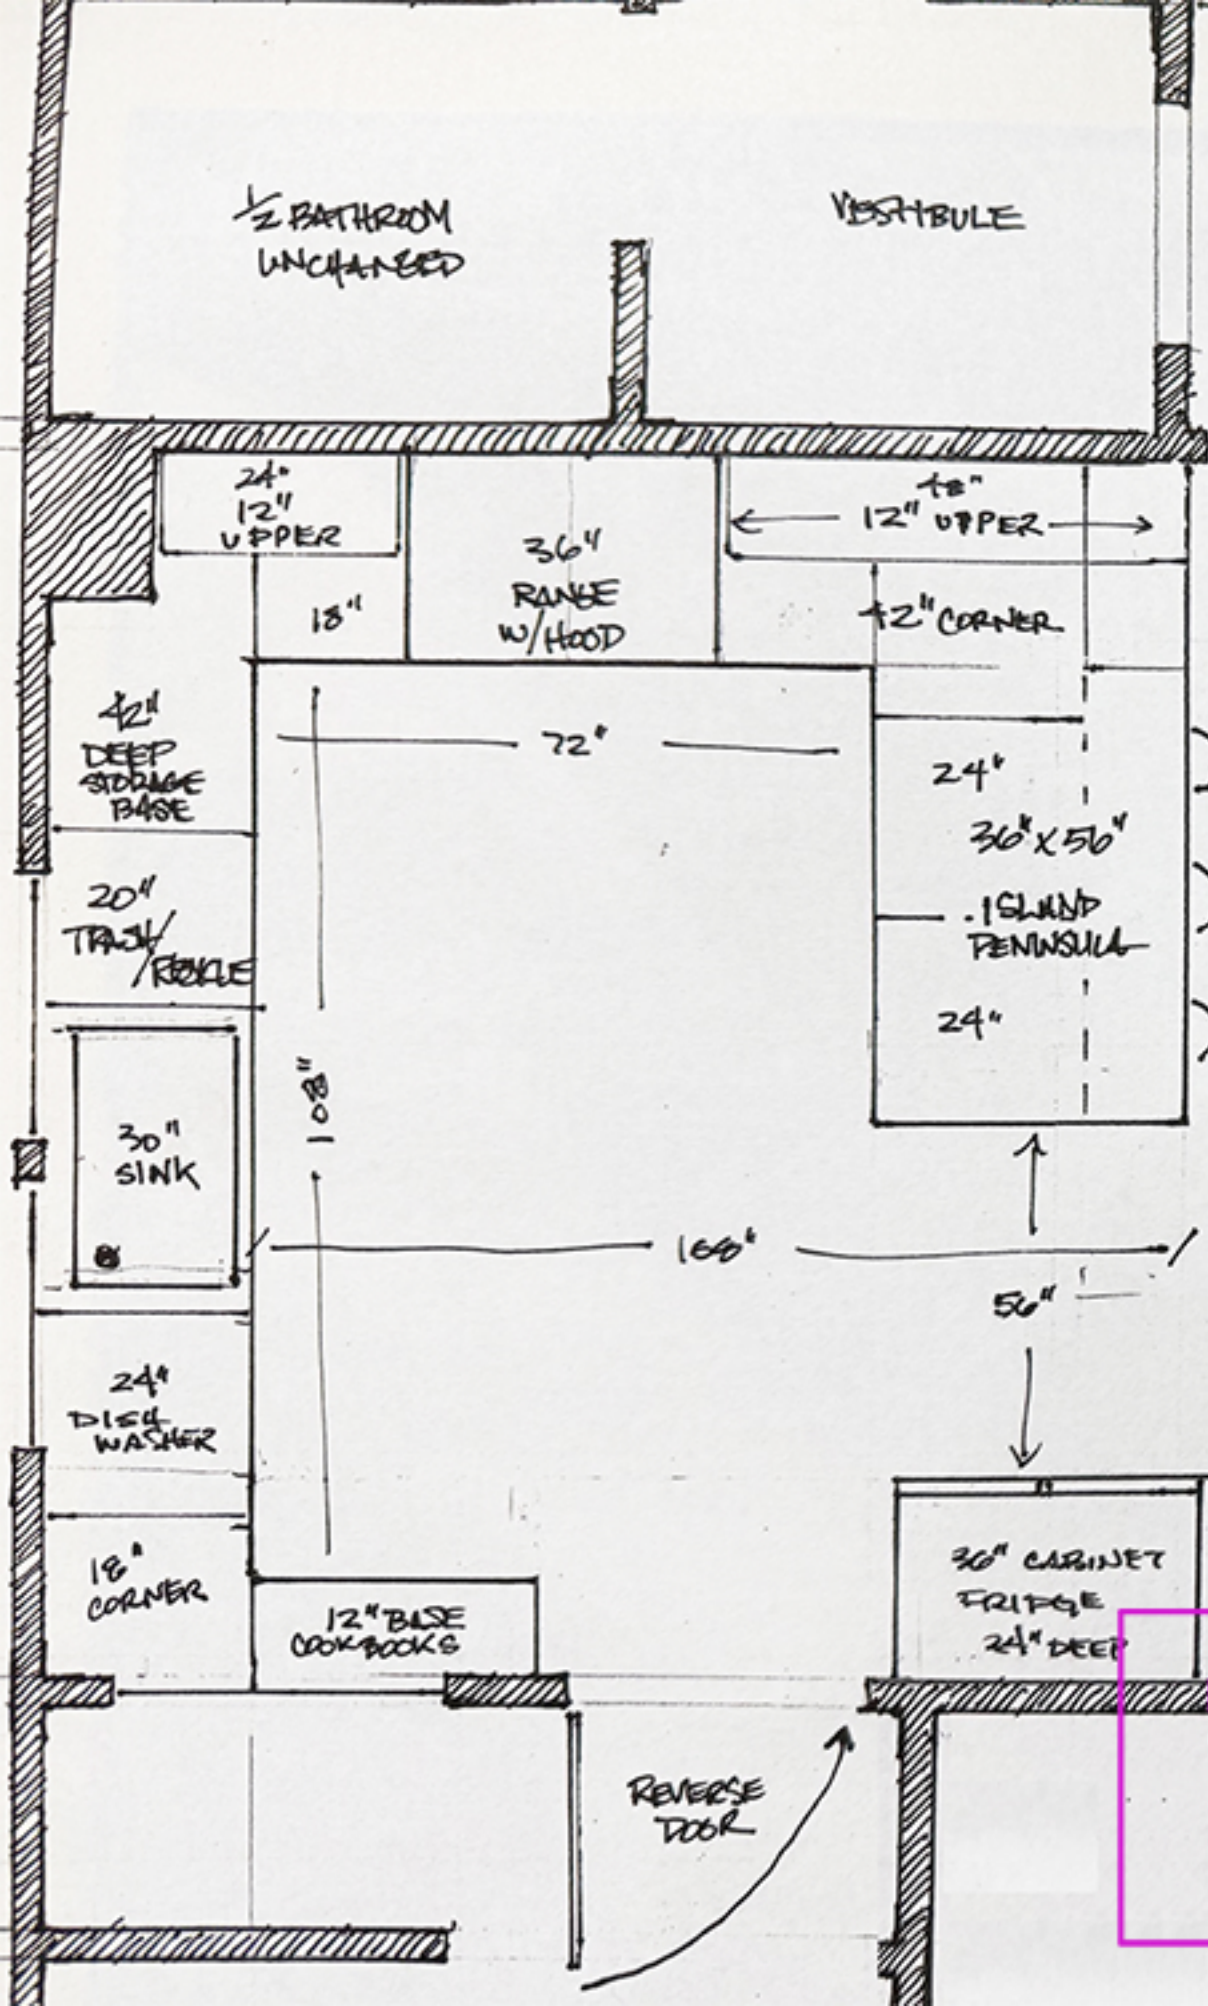 1/2 BATHROOM
UNCHANGED
VESTIBULE
24"
12"
UPPER
18"
36"
RANGE
W/HOOD
48"
12" UPPER
42" CORNER
42"
DEEP
STORAGE
BASE
72"
24"
36" X 56"
ISLAND
PENINSULA
24"
20"
TRASH/
RECYCLE
108"
30"
SINK
168"
56"
24"
DISH
WASHER
18"
CORNER
12" BASE
COOKBOOKS
36" CABINET
FRIDGE
24" DEEP
REVERSE
DOOR